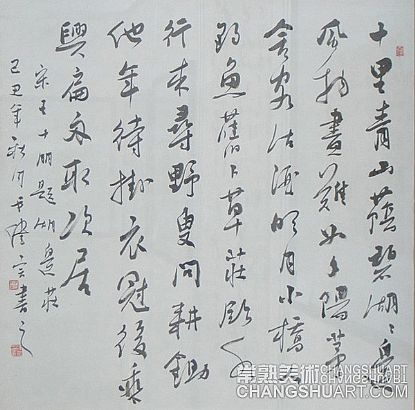 十里青山蔭碧湖湖邊
風物畫難如夕陽茅
舍客沽酒明月小橋人
釣魚舊卜草莊臨水
竹來尋野叟問耕鋤
他年待掛衣冠後乘
興扁舟取次居
宋王十朋題湖邊莊
己丑年秋月雲書之
常熟美術 CHANGSHUART
CHANGSHUART.COM